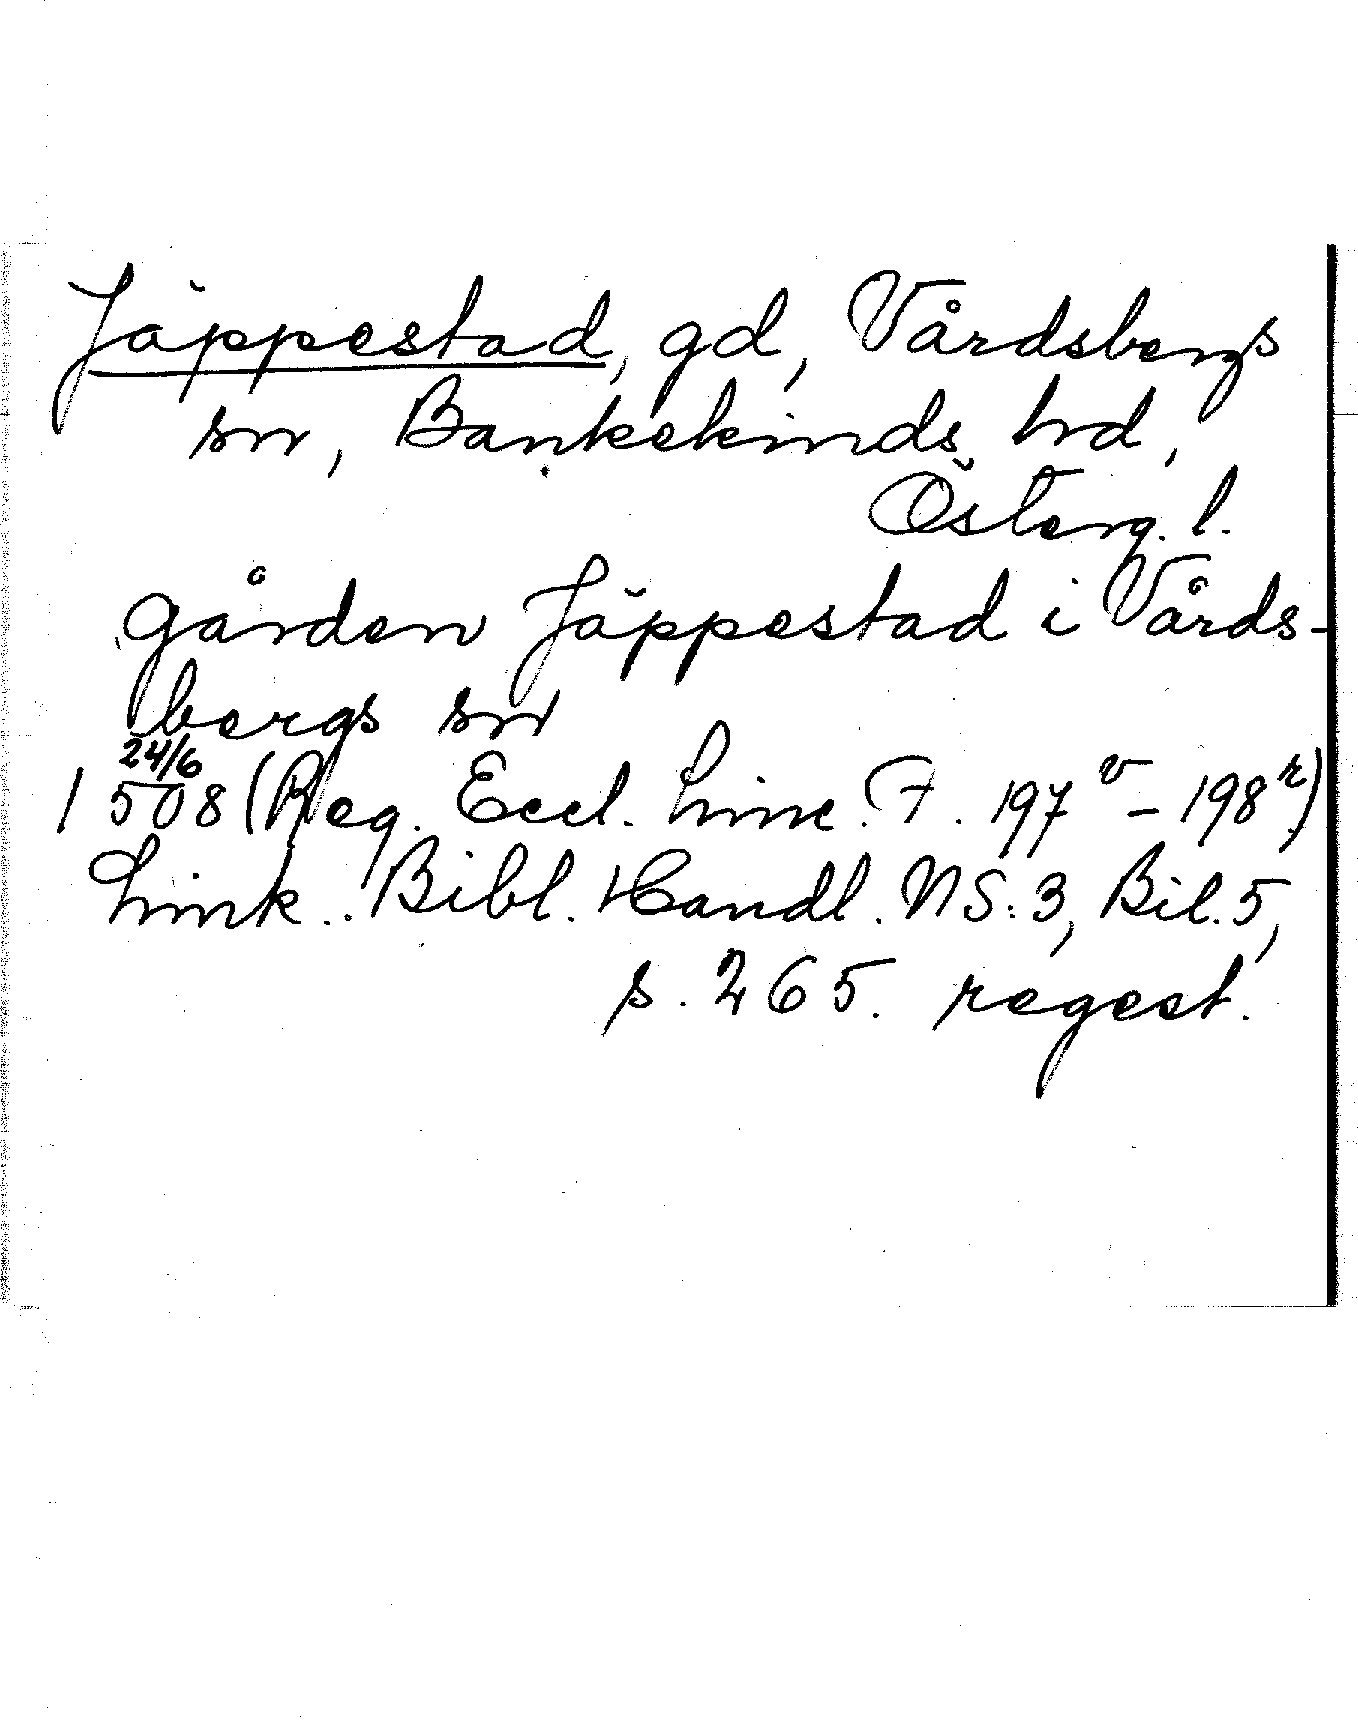 Jäppestad, gd, Vårdsbergs
sn, Bankekinds hd,
Österg. l.
gården Jäppestad i Vårds-
bergs sn
24/6
1508 (Reg. Eccl. Linc. F. 197v - 198r)
Link. Bibl. Handl. NS: 3, Bil. 5,
s. 265. regest.